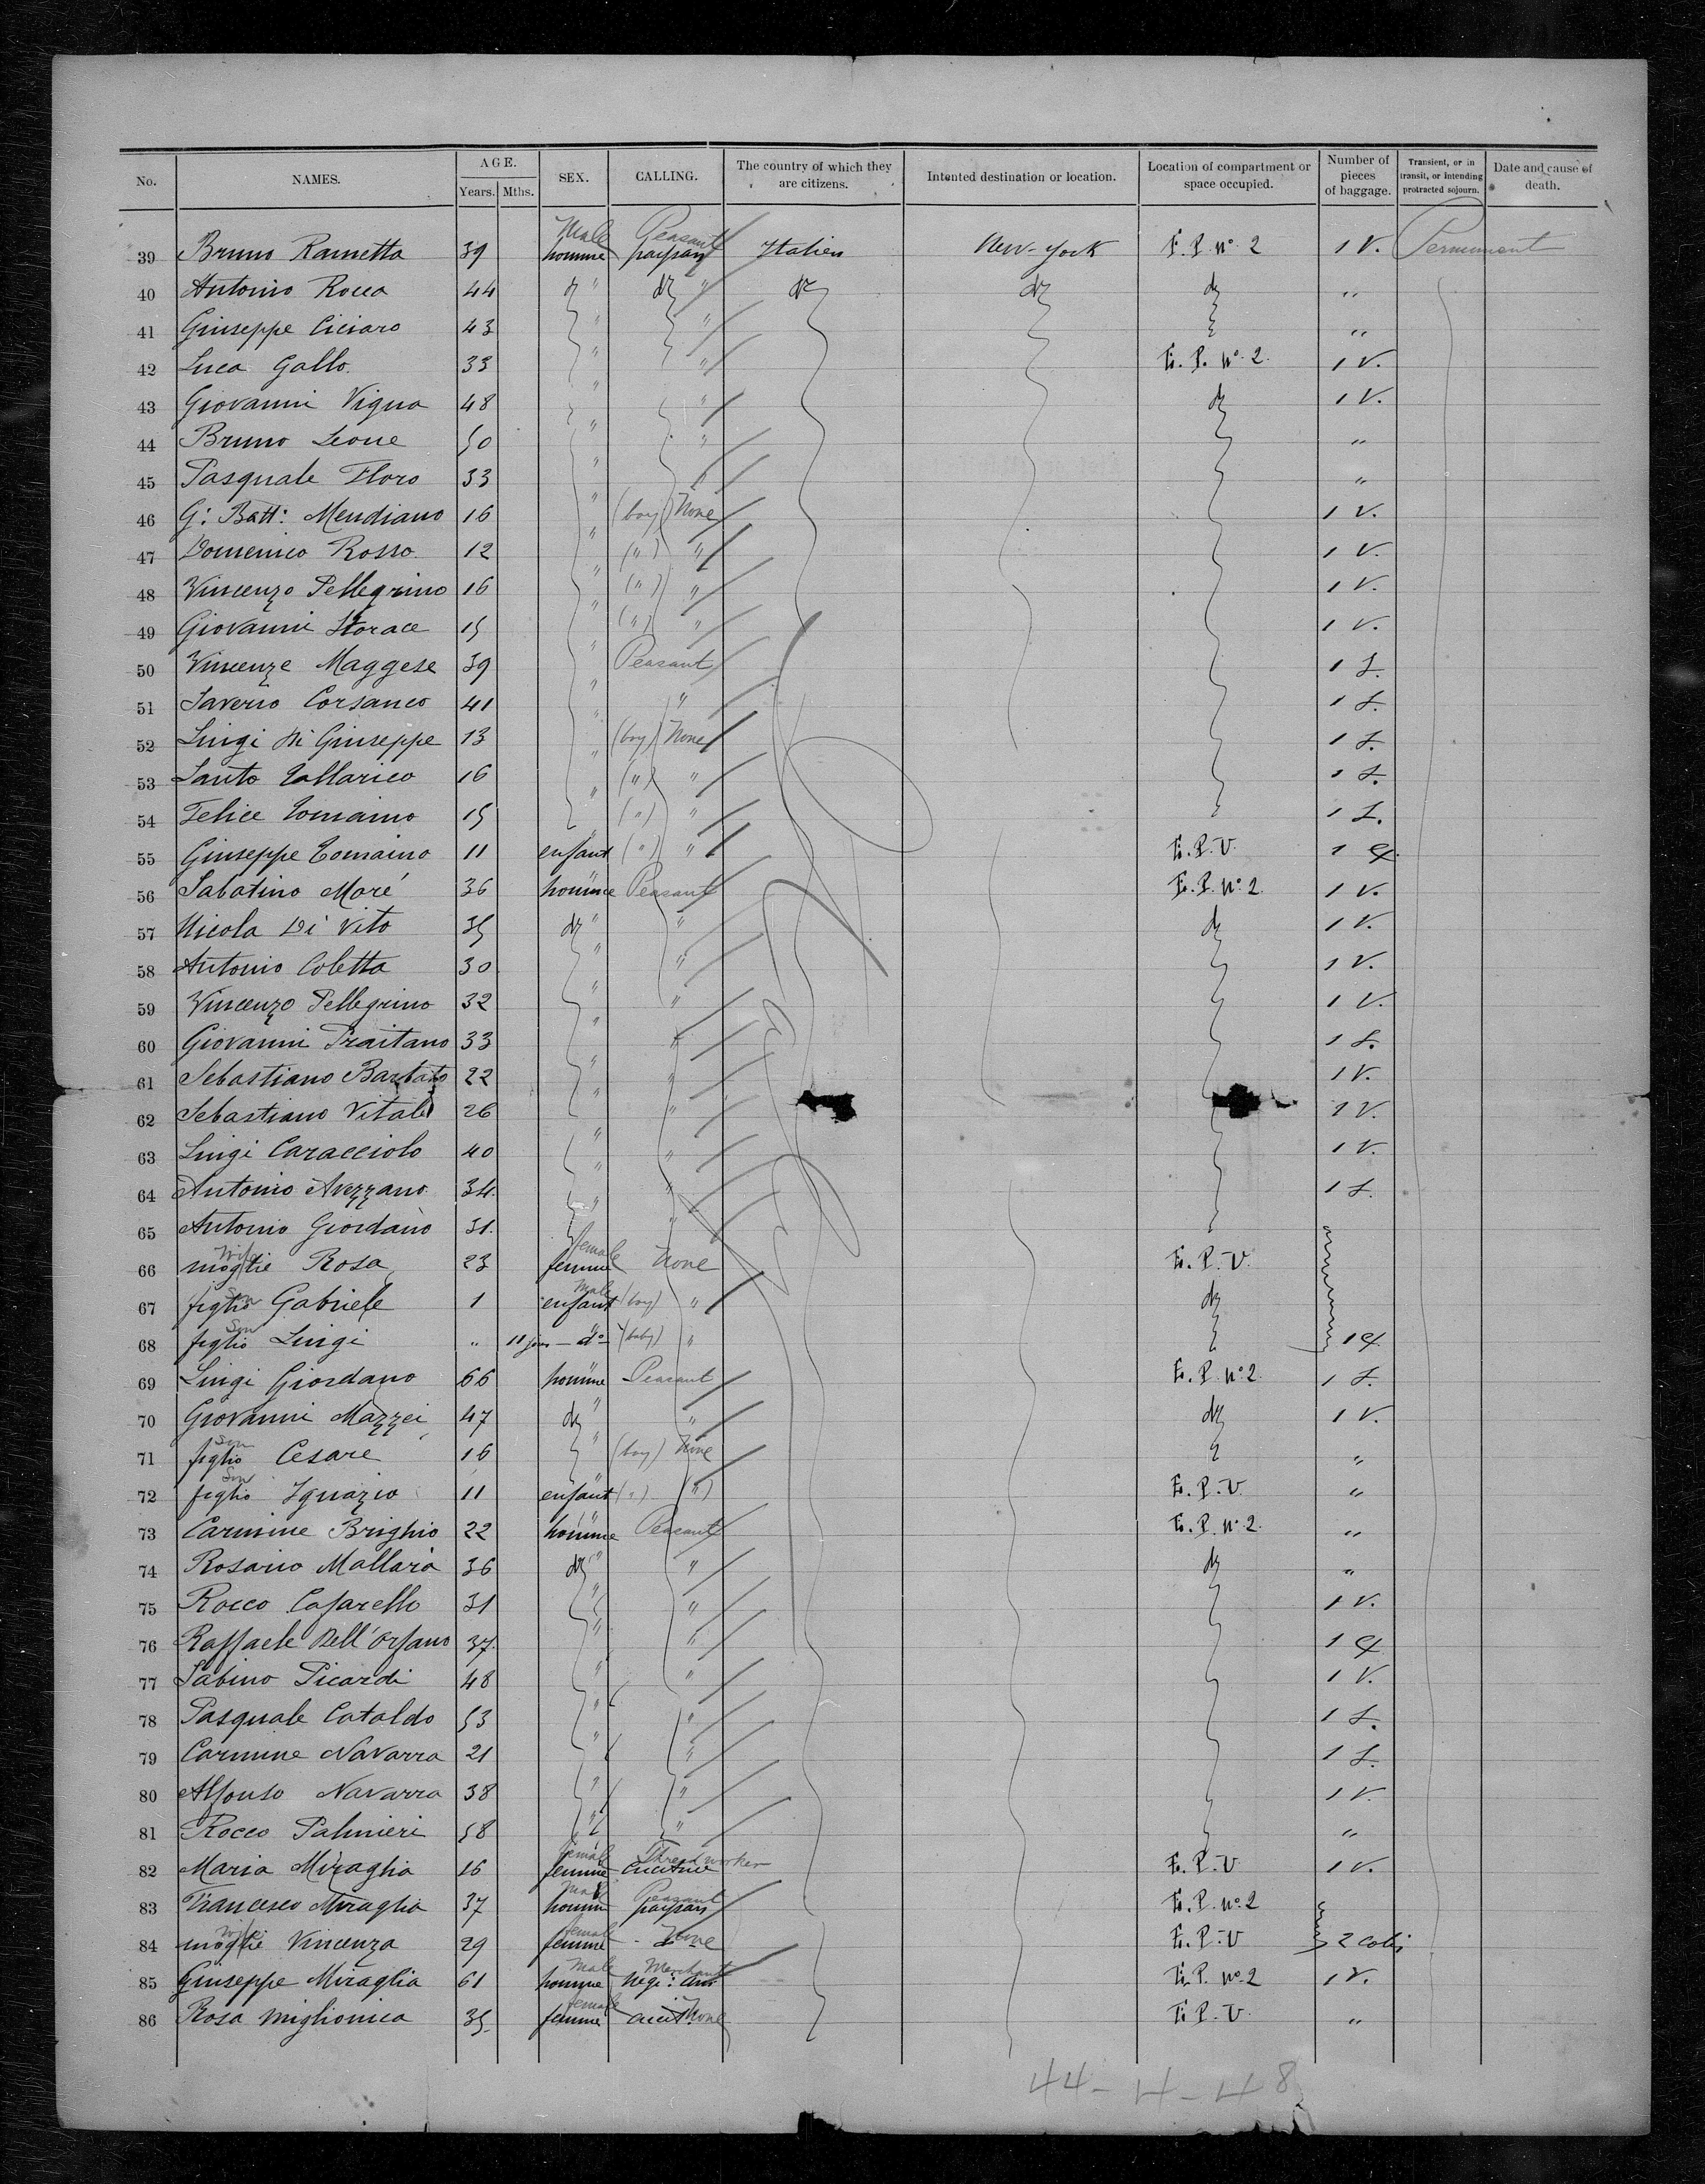 No. NAMES. AGE. Years. Mths. SEX. CALLING. The country of which they are citizens. Intented destination or location. Location of compartment or space occupied. Number of pieces of baggage. Transient, or in transit, or intending protracted sojourn. Date and cause of death.
39 Bruno Rametta 39 Male homme Peasant paysan Italien New-York E.P. Nº 2 1 V. Permanent
40 Antonio Rocca 44 dº " dº " dº dº dº "
41 Giuseppe Ciciaro 43 " " "
42 Luca Gallo 33 " " E.P. Nº 2. 1 V.
43 Giovanni Vigna 48 " " dº 1 V.
44 Bruno Leone 50 " " "
45 Pasquale Floro 33 " " "
46 G: Batt: Mendiano 16 " (boy) None 1 V.
47 Domenico Rosso 12 " (") " 1 V.
48 Vincenzo Pellegrino 16 " (") " 1 V.
49 Giovanni Storace 15 " (") " 1 V.
50 Vincenze Maggese 39 " Peasant 1 S.
51 Saverio Corsanco 41 " " 1 S.
52 Luigi di Giuseppe 13 " (boy) None 1 S.
53 Santo Tallarico 16 " (") " 1 S.
54 Felice Tomaino 15 " (") " 1 S.
55 Giuseppe Tomaino 11 enfant " (") " E.P.V. 1
56 Sabatino Moré 36 homme " Peasant E.P. Nº 2. 1 V.
57 Nicola Di Vito 35 dº " " dº 1 V.
58 Antonio Coletta 30 " " 1 V.
59 Vincenzo Pellegrino 32 " " 1 V.
60 Giovanni Praitano 33 " " 1 S.
61 Sebastiano Barbato 22 " " 1 V.
62 Sebastiano Vitale 26 " " 1 V.
63 Luigi Caracciolo 40 " " 1 V.
64 Antonio Avezzano 34. " " 1 S.
65 Antonio Giordano 31. " "
66 Wife moglie Rosa 23 female femme None E.P.V.
67 Son figlio Gabriele 1 Male enfant (boy) " dº
68 Son figlio Luigi " 11 jours dº " (baby) " 1
69 Luigi Giordano 66 homme " Peasant E.P. Nº 2 1 S.
70 Giovanni Mazzei 47 dº " " dº 1 V.
71 Son figlio Cesare 16 " (boy) None "
72 Son figlio Ignazio 11 enfant " (") (") E.P.V. "
73 Carmine Brighio 22 homme " Peasant E.P. Nº 2. "
74 Rosario Mallaro 36 dº " " dº "
75 Rocco Cafarello 31 " " 1 V.
76 Raffaele Dell'Orfano 37. " " 1
77 Sabino Picardi 48 " " 1 V.
78 Pasquale Cataldo 53 " " 1 S.
79 Carmine Navarra 21 " " 1 S.
80 Alfonso Navarra 38 " " 1 V.
81 Rocco Palmieri 58 " " "
82 Maria Miraglia 16 female femme Thread worker cucitrice E.P.V 1 V.
83 Francesco Miraglia 37 Male homme Peasant paysan E.P. Nº 2
84 Wife moglie Vincenza 29 female femme None E.P.V 2 colis
85 Giuseppe Miraglia 61 Male homme Merchant E.P. Nº 2 1 V.
86 Rosa Miglionica 35. female femme None E.P.V. "
44-4-48